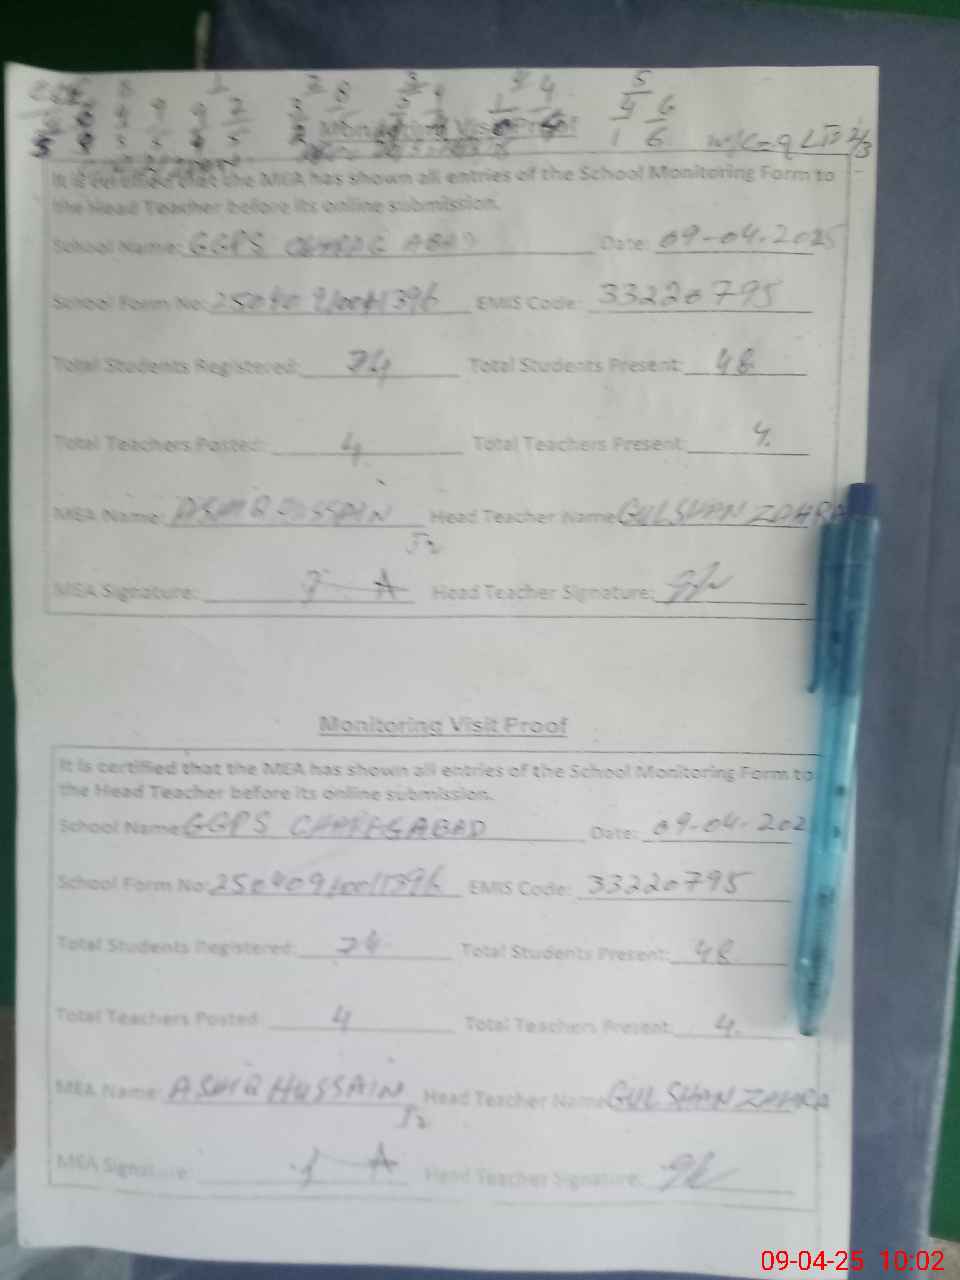 Monitoring Visit Proof
It is certified that the MEA has shown all entries of the School Monitoring Form to
the Head Teacher before its online submission.
School Name: GGPS ABAD Date: 09-04-2025
School Form No: EMIS Code: 33220795
Total Students Registered: 74 Total Students Present: 48
Total Teachers Posted: 4 Total Teachers Present: 4.
MEA Name: ASHIQ HUSSAIN Head Teacher Name GULSHAN ZAHRA
Jr
MEA Signature: Head Teacher Signature:
Monitoring Visit Proof
It is certified that the MEA has shown all entries of the School Monitoring Form to
the Head Teacher before its online submission.
School Name: GGPS Date: 09-04-202
School Form No: EMIS Code: 33220795
Total Students Registered: 74 Total Students Present: 48
Total Teachers Posted: 4 Total Teachers Present: 4.
MEA Name: ASHIQ HUSSAIN Head Teacher Name GULSHAN ZAHRA
Jr
MEA Signature: Head Teacher Signature:
09-04-25 10:02